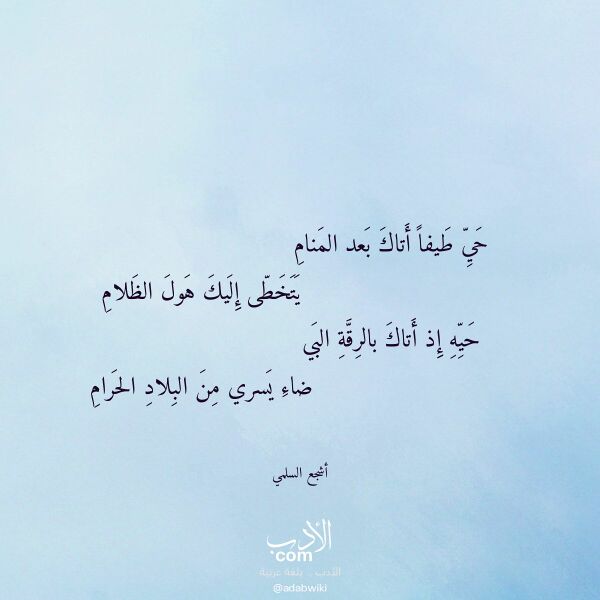 حَيِّ طَيفاً أَتاكَ بَعد المَنامِ
يَتَخَطّى إِلَيكَ هَولَ الظَلامِ
حَيِّهِ إِذ أَتاكَ بالرِقَّةِ البَي
ضاءِ يَسري مِنَ البِلادِ الحَرامِ
أشجع السلمي
الأدب
com
الأدب .. بلغة عربية
@adabwiki